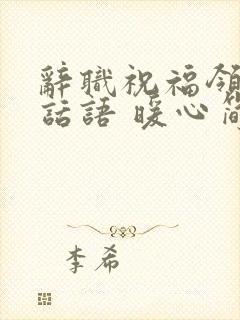 辭職祝福領
話語 暖心簡
李希